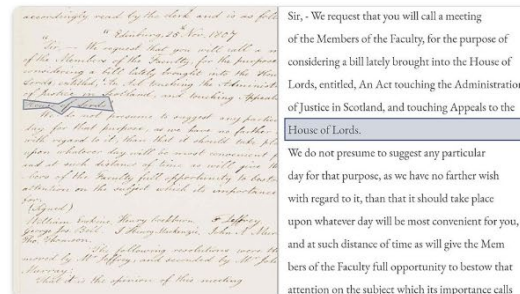 accordingly read by the clerk and is as
" Edinburg, Nov. 1807
" Sir, - We request that you will call a
of the Members of the Faculty, for the purpose
considering a bill lately brought into the
Lords, entitled, An Act touching the Administ
of Justice in Scotland, and touching Appeals
House of Lords.
We do not presume to suggest any
day for that purpose, as we have no farther
with regard to it, than that it should take
upon whatever day will be most convenient
and at such distance of time as will give the
bers of the Faculty full opportunity to
attention on the subject which its importance
(Signed)
William Erskine, Henry Cockburn, F. Jeffrey
George Jos. Bell. J. Henry Mackenzie. John A. Murr
Tho. Thomson.
The following resolutions were
moved by Mr Jeffrey, and seconded by Mr
Murray:
That it is the opinion of this meeting
Sir, - We request that you will call a meeting
of the Members of the Faculty, for the purpose of
considering a bill lately brought into the House of
Lords, entitled, An Act touching the Administration
of Justice in Scotland, and touching Appeals to the
House of Lords.
We do not presume to suggest any particular
day for that purpose, as we have no farther wish
with regard to it, than that it should take place
upon whatever day will be most convenient for you,
and at such distance of time as will give the Mem
bers of the Faculty full opportunity to bestow that
attention on the subject which its importance calls